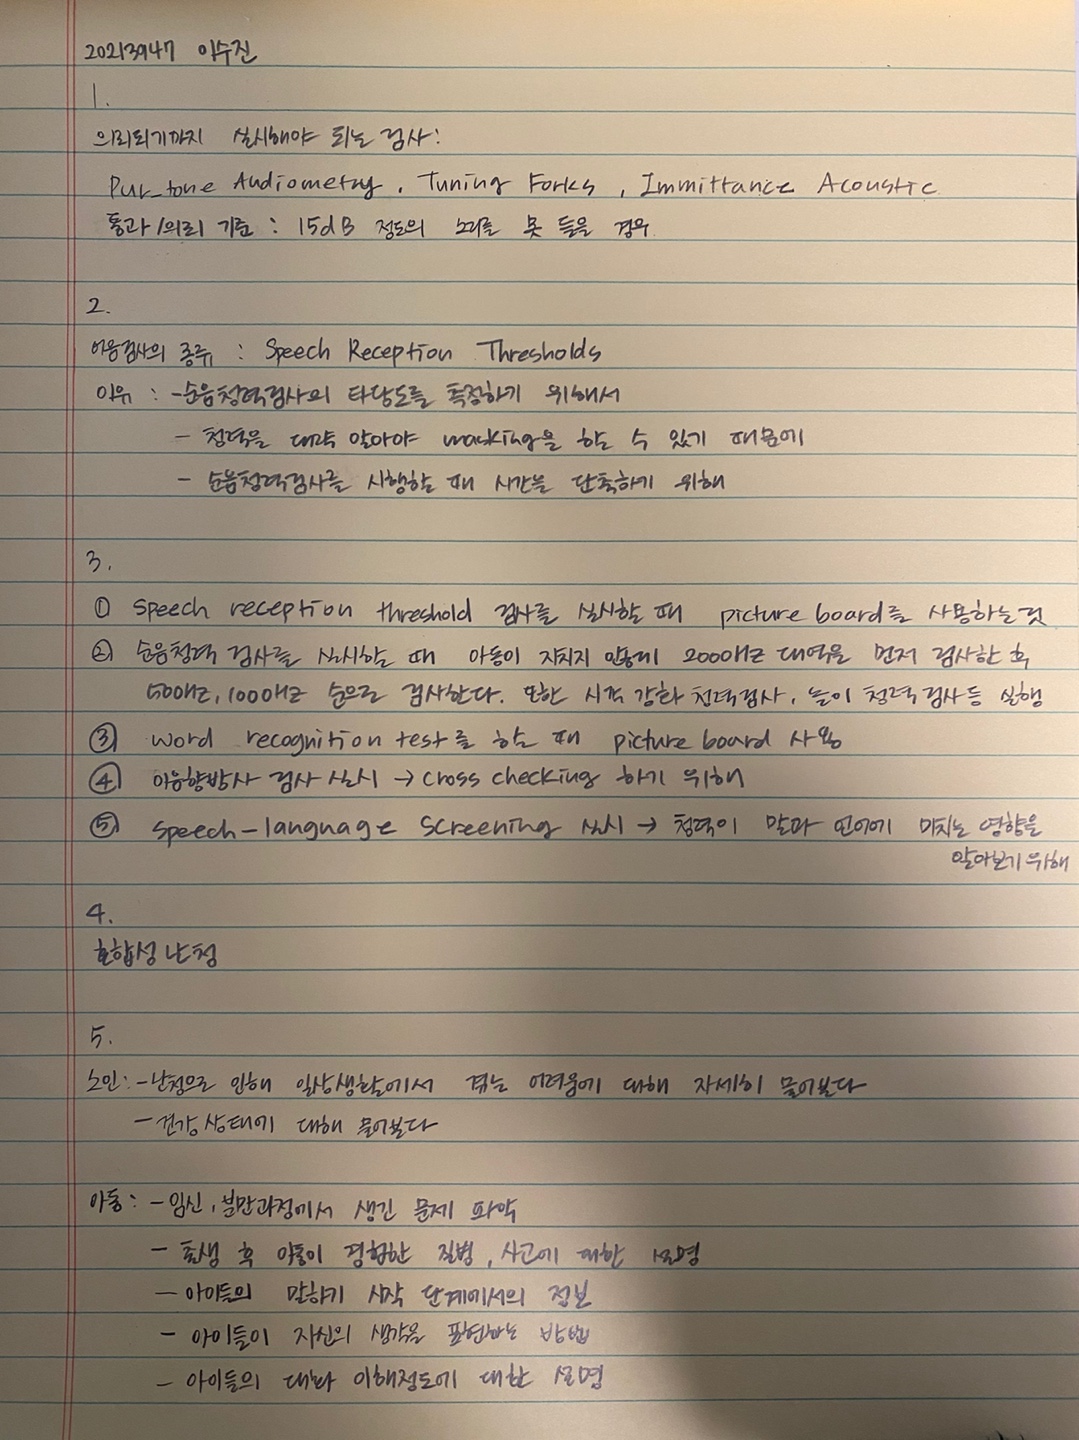 20213947 이수진
1.
의뢰되기까지 실시해야 되는 검사:
Pur_tone Audiometry, Tuning Forks, Immittance Acoustic
통과/의뢰 기준 : 15dB 정도의 소리를 못 들을 경우
2.
어음검사의 종류 : Speech Reception Thresholds
이유 : -순음청력검사의 타당도를 측정하기 위해서
- 청력을 대략 알아야 masking을 할 수 있기 때문에
- 순음청력검사를 시행할 때 시간을 단축하기 위해
3.
① speech reception threshold 검사를 실시할 때 picture board를 사용하는것
② 순음청력 검사를 실시할 때 아동이 지치지 않게 2000HZ 대역을 먼저 검사한 후
500HZ, 1000HZ 순으로 검사한다. 또한 시각 강화 청력검사, 놀이 청력검사 등 실행
③ word recognition test를 할 때 picture board 사용
④ 이음향방사 검사 실시 → cross checking 하기 위해
⑤ speech-language screening 실시 → 청력이 말과 언어에 미치는 영향을
알아보기 위해
4.
혼합성 난청
5.
노인: -난청으로 인해 일상생활에서 겪는 어려움에 대해 자세히 물어본다
- 건강상태에 대해 물어본다
아동: -임신, 분만과정에서 생긴 문제 파악
- 출생 후 아동이 경험한 질병, 사고에 대한 설명
- 아이들의 말하기 시작 단계에서의 정보
- 아이들이 자신의 생각을 표현하는 방법
- 아이들의 대화 이해정도에 대한 설명